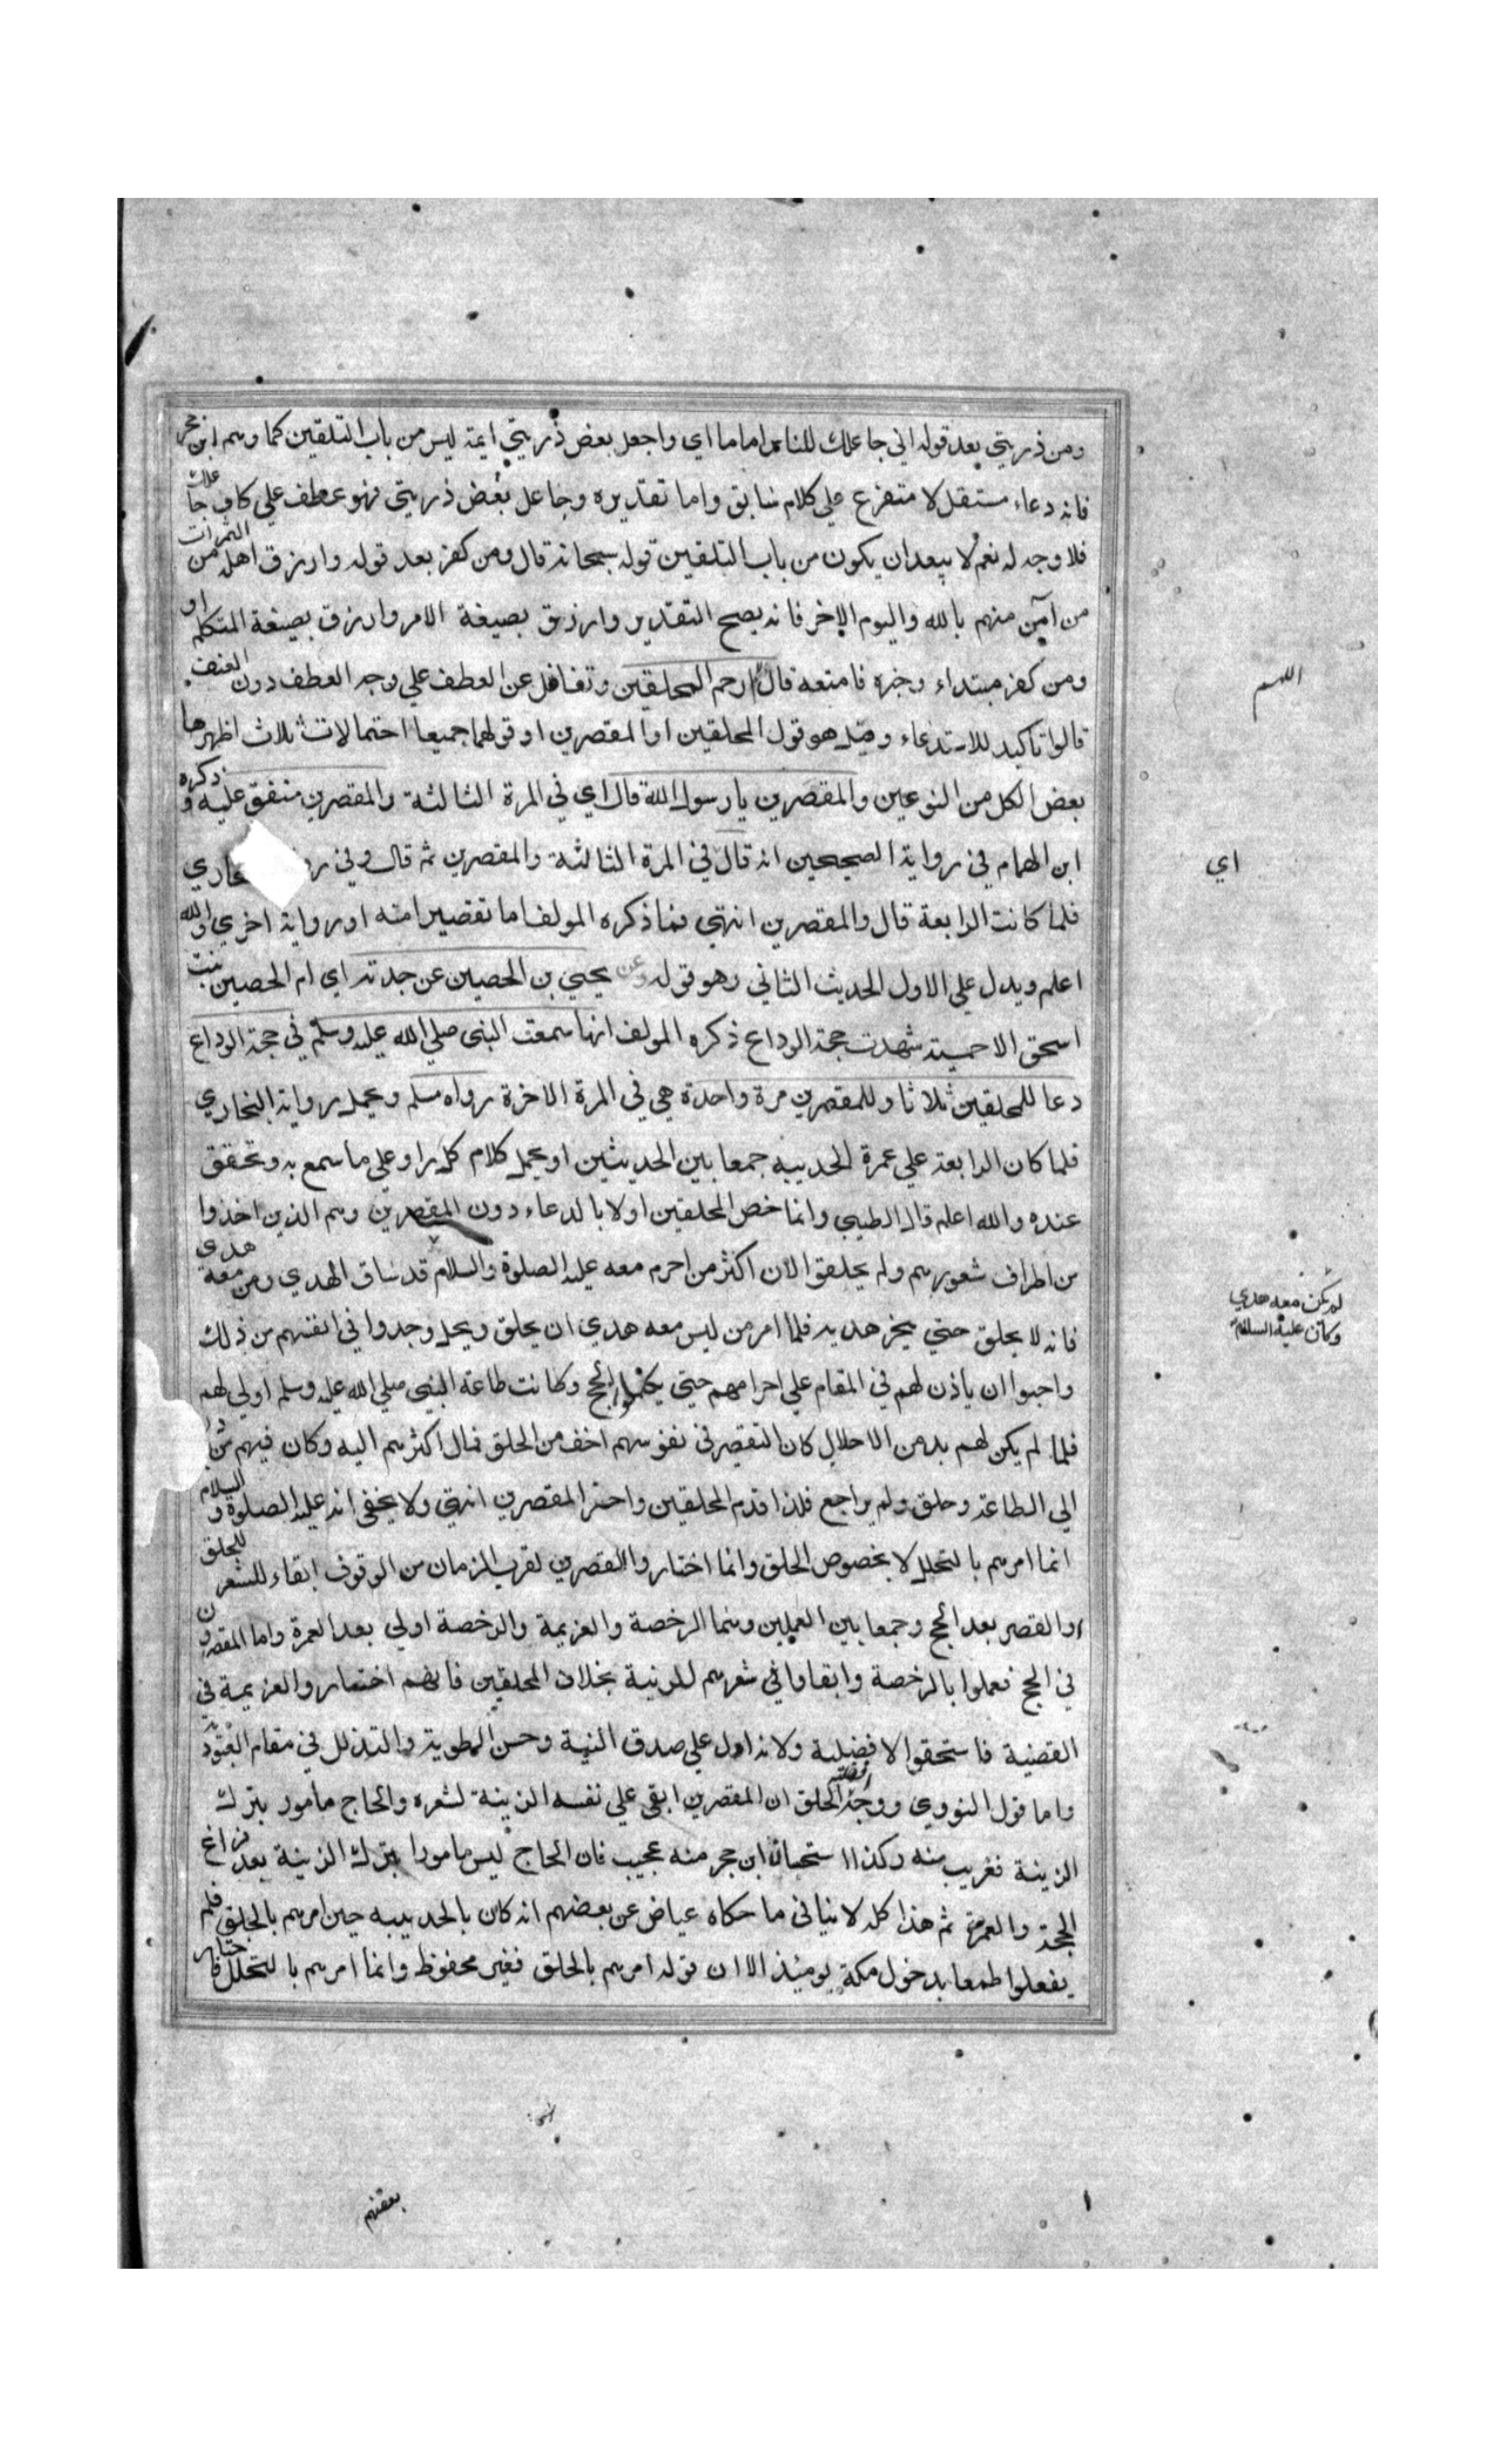 ومن ذريتي بعد قوله اني جاعلك للناس اماما اي واجعل بعض ذريتي ايمة ليس من باب التلقين كما وهم ابن حجر
فانه دعاء مستقل لا متفرع علي كلام سابق واما تقديره وجاعل بعض ذريتي فهو عطف علي كاف جاعلك
فلا وجه له نعم لا يبعد ان يكون من باب التلقين قوله سبحانه قال ومن كفر بعد قوله وارزق اهله من الثمرات
من آمن منهم بالله واليوم الاخر فانه يصح التقدير وارزق بصيغة الامر وارزق بصيغة المتكلم او
ومن كفر مبتداء وخبره فامتعه قال ارحم المحلقين وتغافل عن العطف علي وجه العطف دون العنف
اللهم
قالوا تاكيد للاستدعاء وقيل هو قول المحلقين او المقصرين او قولهما جميعا احتمالات ثلاث اظهرها
بعض الكل من النوعين والمقصرين يا رسول الله قال اي في المرة الثالثة والمقصرين متفق عليه وذكره
ابن الهمام في رواية الصحيحين انه قال في المرة الثالثة والمقصرين ثم قال وفي
اي
فلما كانت الرابعة قال والمقصرين انتهي فما ذكره المولف اما تقصير منه او رواية اخري والله
اعلم ويدل علي الاول الحديث الثاني وهو قوله وعن يحيي بن الحصين عن جدته اي ام الحصين بنت
اسحق الاحمسية شهدت حجة الوداع ذكره المولف انها سمعت النبي صلي الله عليه وسلم في حجة الوداع
دعا للمحلقين ثلاثا وللمقصرين مرة واحدة هي في المرة الاخرة رواه مسلم ويحمل رواية البخاري
فلما كان الرابعة علي عمرة الحديبيه جمعا بين الحديثين او يحمل كلام كل راو علي ما سمع به وتحقق
عنده والله اعلم قال الطيبي وانما خص المحلقين اولا بالدعاء دون المقصرين وهم الذين اخذوا
من اطراف شعورهم ولم يحلقوا لان اكثر من احرم معه عليه الصلوة والسلام قد ساق الهدي ومن معه هدي
لم يكن معه هدي
وكان عليه السلام
فانه لا يحلق حتي ينحر هديه فلما امر من ليس معه هدي ان يحلق ويحل وجدوا في انفسهم من ذلك
واحبوا ان ياذن لهم في المقام علي احرامهم حتي يكملوا الحج وكانت طاعة النبي صلي الله عليه وسلم اولي لهم
فلما لم يكن لهم بد من الاحلال كان التقصير في نفوسهم اخف من الحلق فمال اكثرهم اليه وكان فيهم من
الي الطاعة وحلق ولم يراجع فلذا قدم المحلقين واخر المقصرين انتهي ولا يخفي انه عليه الصلوة والسلام
انما امرهم بالتحلل لا بخصوص الحلق وانما اختاروا القصر لقرب الزمان من الوقوف ابقاء للشعر للحلق
او القصر بعد الحج وجمعا بين العملين وهما الرخصة والعزيمة والرخصة اولي بعد العمرة واما المقصرون
في الحج فعملوا بالرخصة وابقاءا في شعرهم للزينة بخلاف المحلقين فانهم اختاروا العزيمة في
القضية فاستحقوا الافضلية ولانه ادل علي صدق النية وحسن الطوية والتذلل في مقام العبودية
واما قول النووي ووجه افضلية الحلق ان المقصرين ابقي علي نفسه الزينة لشعره والحاج مأمور بترك
الزينة فغريب منه وكذا استحسان ابن حجر منه عجيب فان الحاج ليس مامورا بترك الزينة بعد فراغ
الحجة والعمرة ثم هذا كله لا ينافي ما حكاه عياض عن بعضهم انه كان بالحديبيه حين امرهم بالحلق فلم
يفعلوا طمعا بدخول مكة يومئذ الا ان قوله امرهم بالحلق فغير محفوظ وانما امرهم بالتحلل فاختار
بعضهم